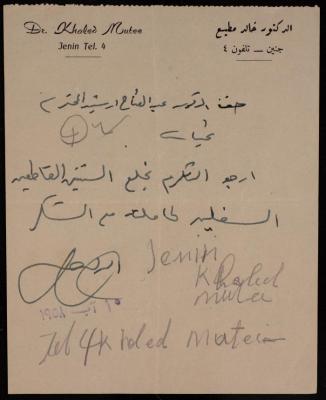 Dr. Khaled Mutee
Jenin Tel. 4
الدكتور خالد مطيع
جنين — تلفون ٤
حضرة الدكتور عبد الفتاح المحترم
تحيات
ارجو التكرم بخلع السنتين القاطعين
السفليين لحاملته مع الشكر
Jenin
Khaled
Mutee
١٠ آب ١٩٥٨
Tel 4 Khaled Mateia